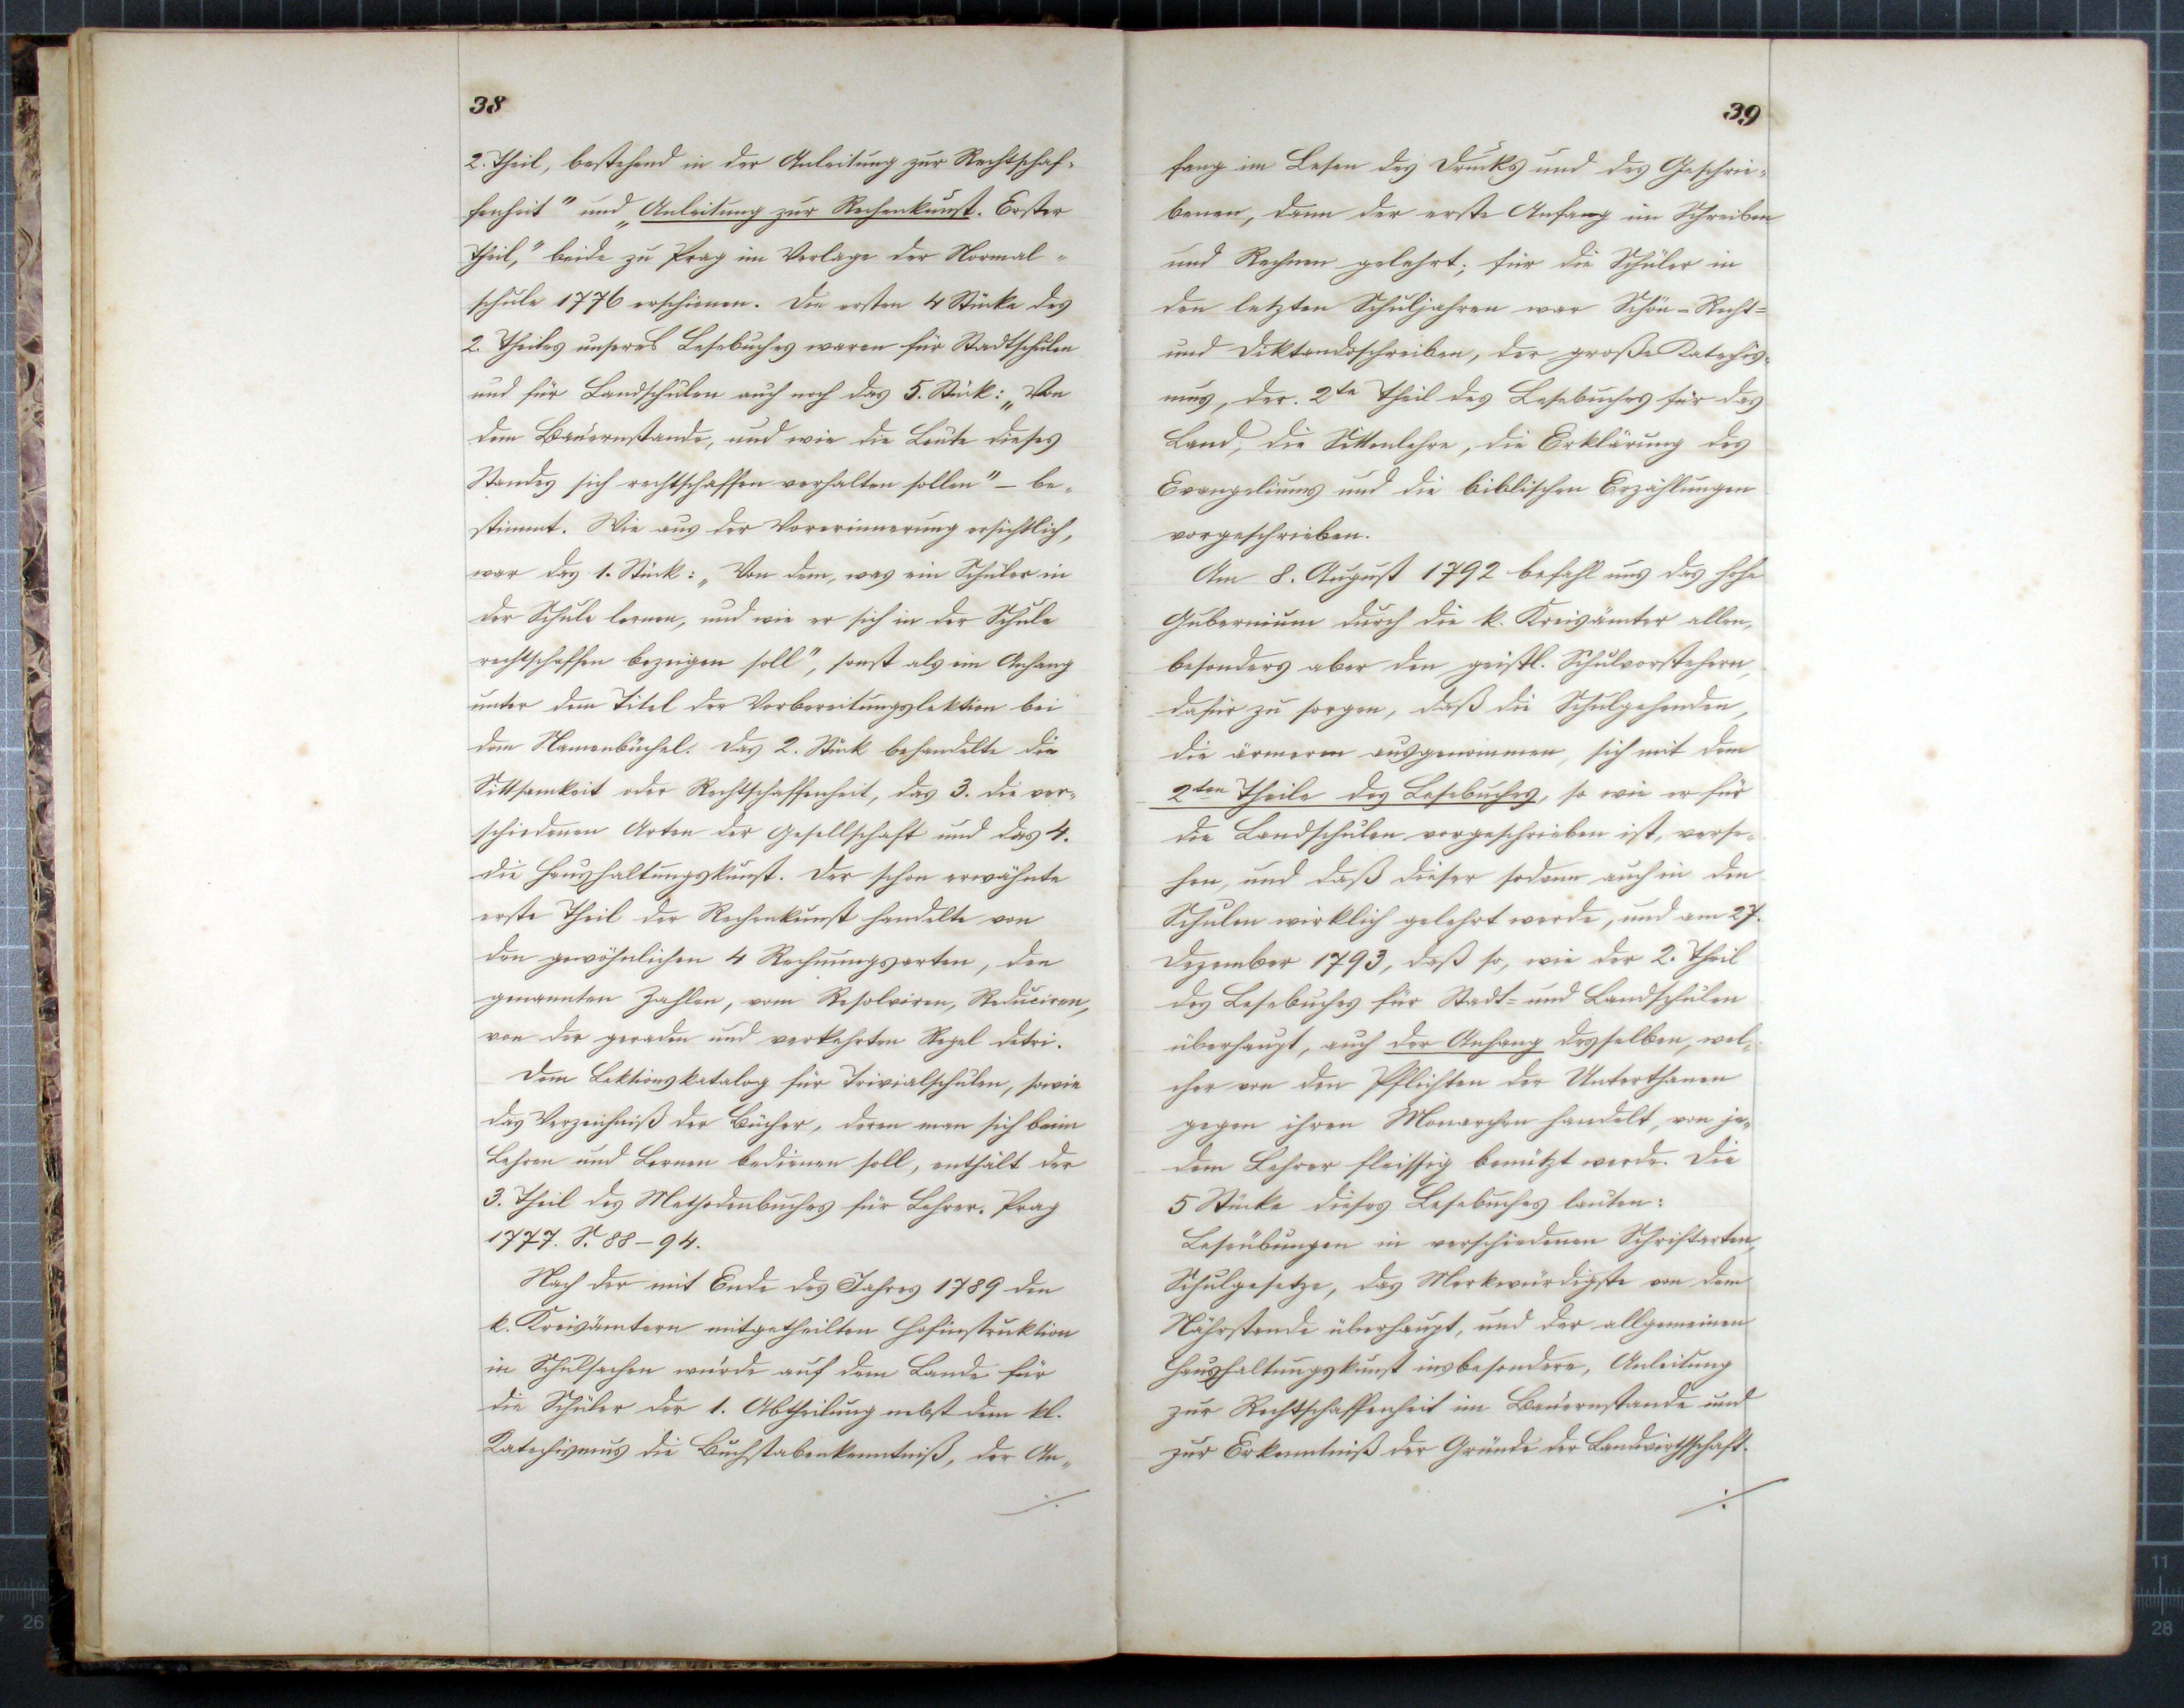 38
2. Theil, bestehend in der Anleitung zur Rechtschaf-
fenheit" und „Anleitung zur Rechenkunst. Erster
Theil," beide zu Prag im Verlage der Normal-
schule 1776 erschienen. Die ersten 4 Stücke des
2. Theiles unseres Lesebuches waren für Stadtschulen
und für Landschulen auch noch das 5. Stück: „Von
dem Bauernstande, und wie die Leute dieses
Standes sich rechtschaffen verhalten sollen" – be-
stimmt. Wie aus der Vorerinnerung ersichtlich,
war das 1. Stück: „Von dem, was ein Schüler in
der Schule lernen, und wie er sich in der Schule
rechtschaffen bezeigen soll", sonst als ein Anhang
unter dem Titel der Vorbereitungslektion bei
dem Namenbüchel. Das 2. Stück behandelte die
Sittsamkeit oder Rechtschaffenheit, das 3. die ver-
schiedenen Arten der Gesellschaft und das 4.
die Haushaltungskunst. Der schon erwähnte
erste Theil der Rechenkunst handelte von
den gewöhnlichen 4 Rechnungsarten, den
genannten Zahlen, vom Resolviren, Reduciren,
von der geraden und verkehrten Regel detri.
Dem Lektionskatalog für Trivialschulen, sowie
das Verzeichniß der Bücher, deren man sich beim
Lehren und Lernen bedienen soll, enthält der
3. Theil des Methodenbuches für Lehrer. Prag
1777. S. 88–94.
Nach der mit Ende des Jahres 1789 den
k. Kreisämtern mitgetheilten Hofinstruktion
in Schulsachen wurde auf dem Lande für
die Schüler der 1. Abtheilung nebst dem kl.
Katechismus die Buchstabenkenntniß, der An-
./.
39
fang im Lesen des Drucks und des Geschrie-
benen, dann der erste Anfang im Schreiben
und Rechnen gelehrt; für die Schüler in
den letzten Schuljahren war Schön- Recht-
und Diktandoschreiben, der große Katechis-
mus, der 2te Theil des Lesebuches für das
Land, die Sittenlehre, die Erklärung des
Evangeliums und die biblischen Erzählungen
vorgeschrieben.
Am 8. August 1792 befahl uns das hohe
Gubernium durch die k. Kreisämter allen,
besonders aber den geistl. Schulvorstehern,
dafür zu sorgen, daß die Schulgehenden,
die ärmeren ausgenommen, sich mit dem
2ten Theile des Lesebuches, so wie er für
die Landschulen vorgeschrieben ist, verse-
hen, und daß dieser sodann auch in den
Schulen wirklich gelehrt werde, und am 27.
Dezember 1793, daß so, wie der 2. Theil
des Lesebuches für Stadt- und Landschulen
überhaupt, auch der Anhang desselben, wel-
cher von den Pflichten der Unterthanen
gegen ihren Monarchen handelt, von je-
dem Lehrer fleissig benützt werde. Die
5 Stücke dieses Lesebuches lauten:
Leseübungen in verschiedenen Schriftarten,
Schulgesetze, das Merkwürdigste von dem
Nährstande überhaupt, und der allgemeinen
Haushaltungskunst insbesondere, Anleitung
zur Rechtschaffenheit im Bauernstande und
zur Erkenntniß der Gründe der Landwirthschaft.
./.
26
11
28